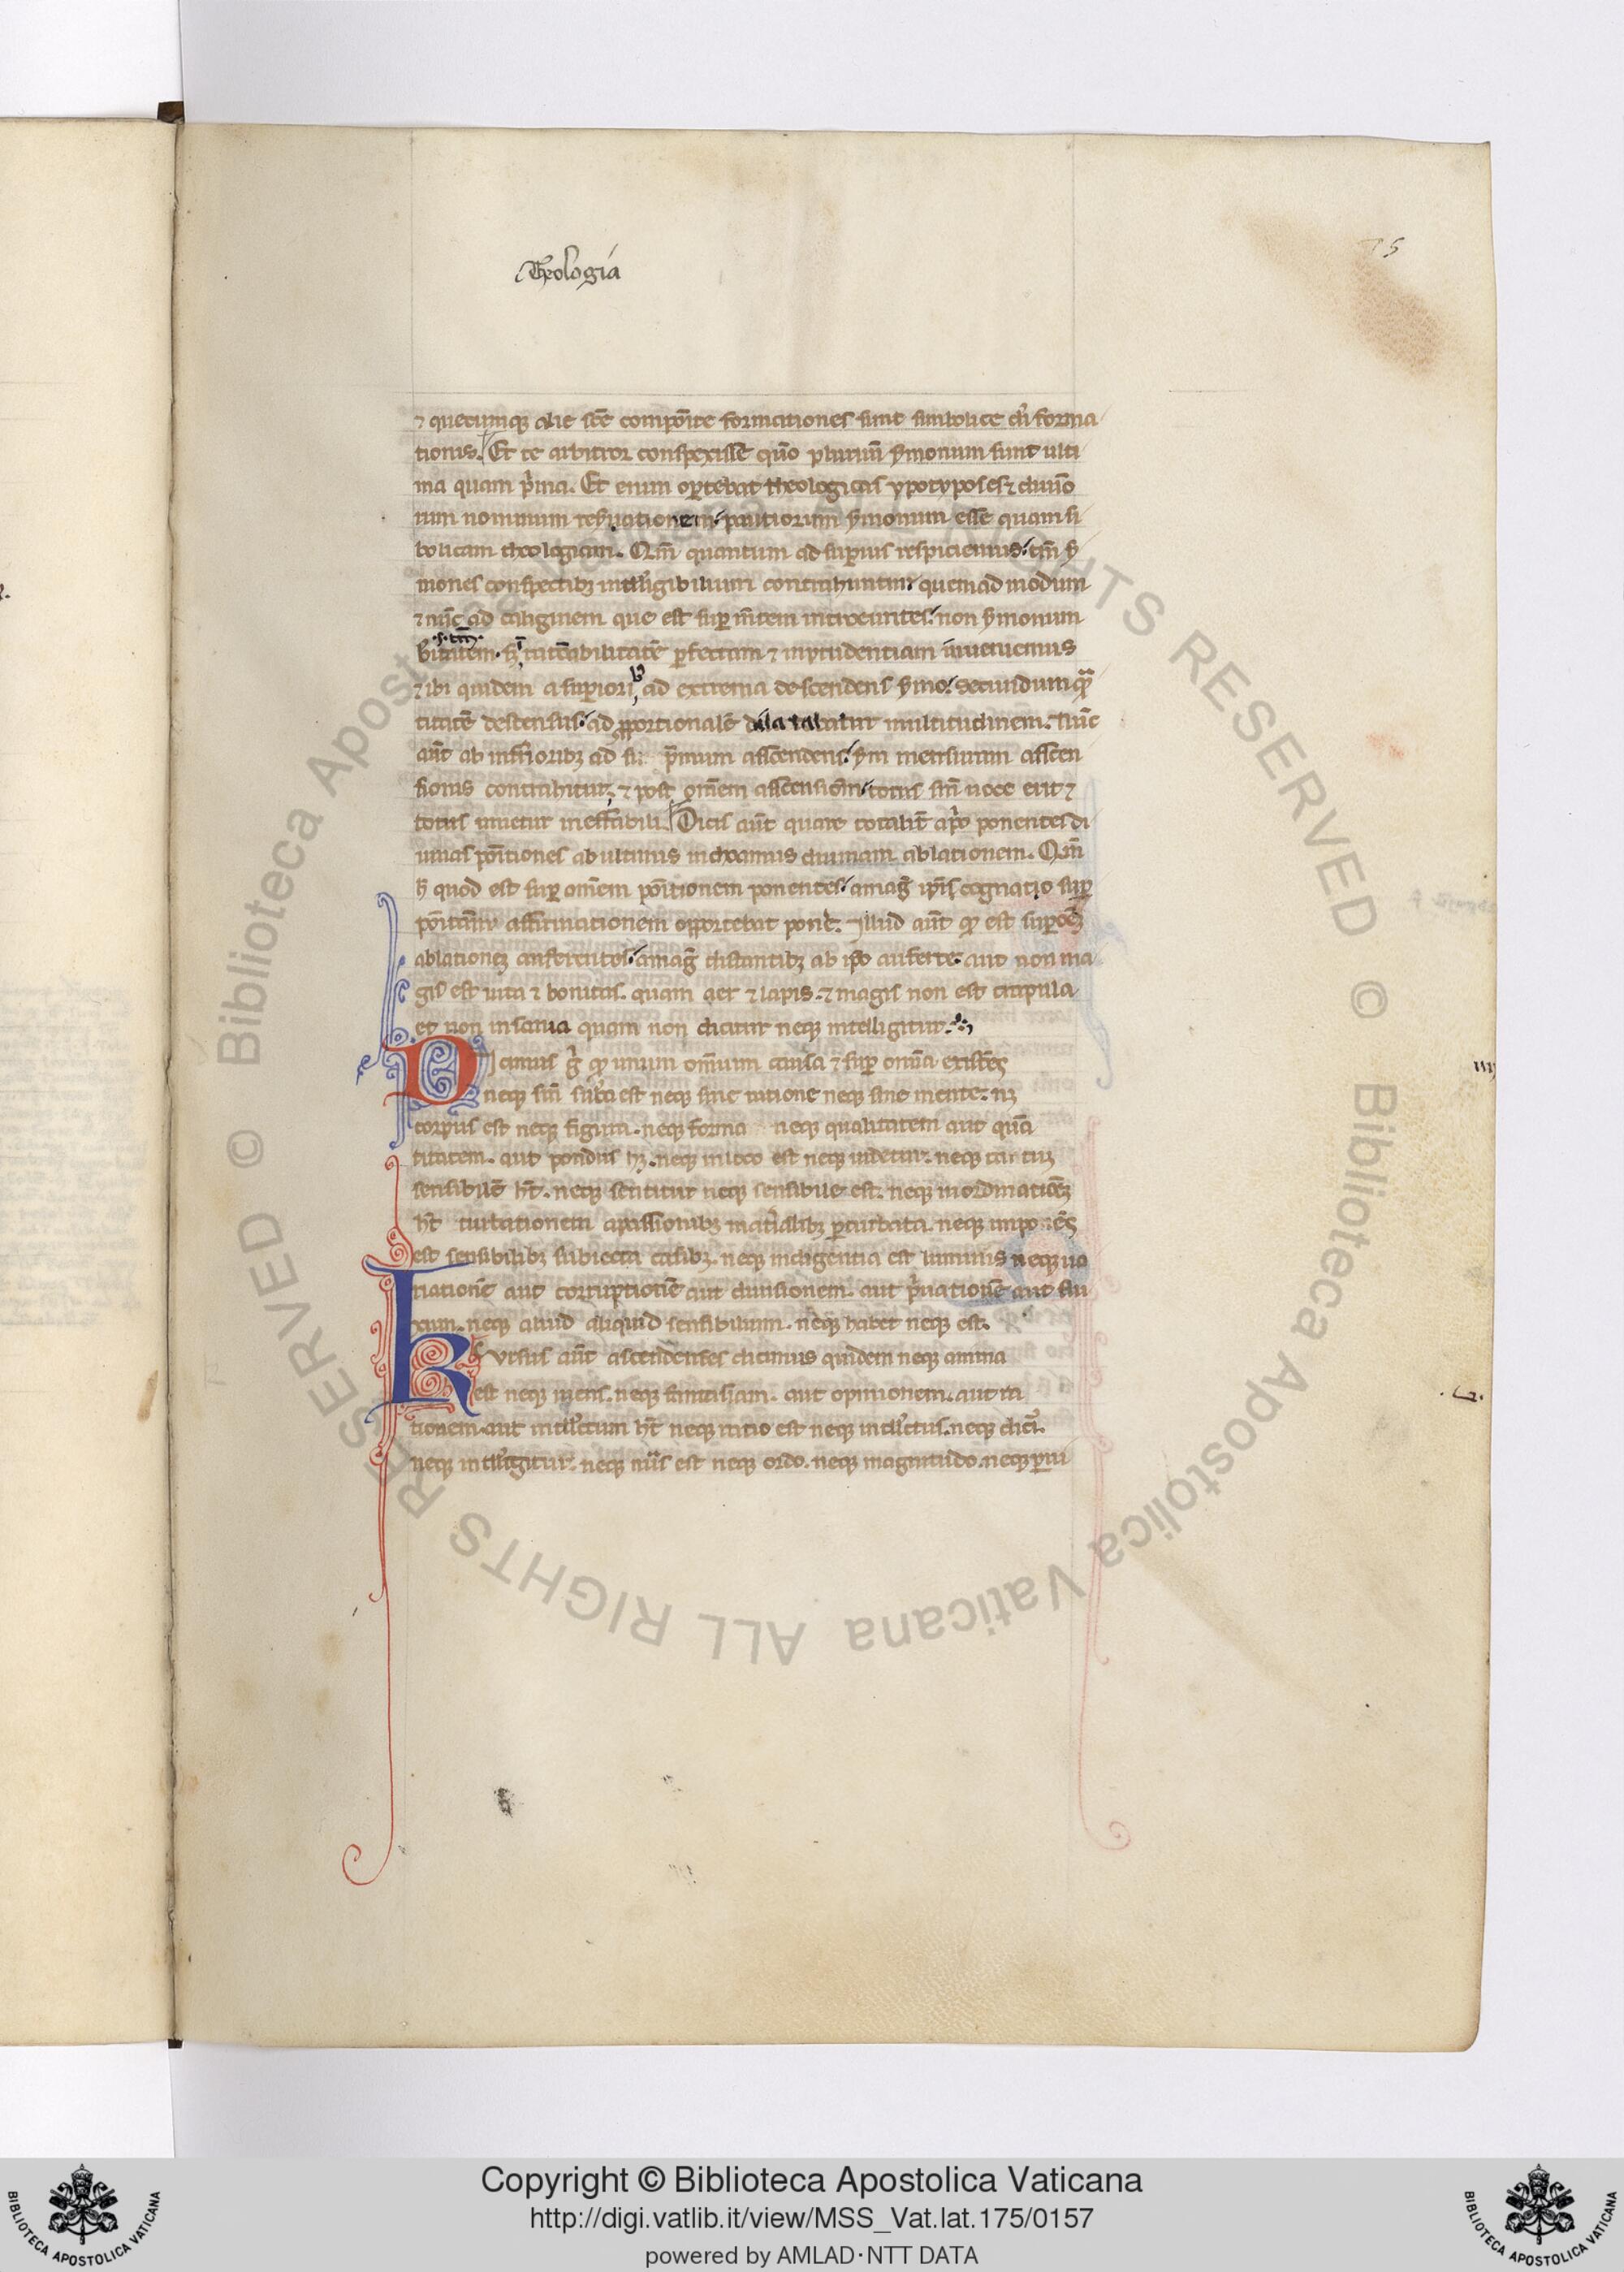 Theologia
75
⁊ quecumque alie sc̄e compōite formationes sunt simbolice dei forma
tionis. Et te arbitror conspexisse quō plurium s̄monum sunt ulti
ma quam p̄ma. Et enim oportebat theologicas ypotyposes ⁊ diuino
rum nominum reseruationem pautiorum s̄monum esse quam si
bolicam theologiam. Qm̄ quantum ad superius respiciemus tm̄ s̄
mones conspectibꝫ intelligibilium contrahuntur quemadmodum
⁊ nūc ad caliginem que est super mētem introeuntes non s̄monum
⁊ ibi quidem a superiori ad extrema descendens s̄mo secundum quā
titatē descensus ad proportionalē dilatabatur multitudinem. Nūc
aūt ab inferioribꝫ ad su p̄mum asscendens s̄m mensuram asscen
sionis contrahitur ⁊ post omnem asscensionem totus sine uoce erit ⁊
totus unietur ineffabili. Dicis aūt quare totaliter a p̄o ponentes di
uinas pōitiones ab ultimis inchoamus diuinam ablationem. Qm̄
quod est super omēm pōitionem ponentes a magis ip̄i cognatio super
affirmationem opportebat ponere. Illud aūt quod est super oēm
ablationem auferentes a magis distantibꝫ ab ip̄o auferre aut non ma
gis est uita ⁊ bonitas. quam aer ⁊ lapis. ⁊ magis non est crapula
et non insania quam non dicitur neque intelligitur.
Dicimus g̊ quod unum omnium causa ⁊ super omnia existēs
neque sine sub'a est neque sine ratione neque sine mente. nꝫ
corpus est neque figura. neque forma neque qualitatem aut quā
titatem. aut pondus hꝫ. neque in loco est neque uidetur. neque tactum
sensibilē h̄t. neque sentitur neque sensibile est. neque inordinationē
h̄t turbationem a passionibꝫ materialibꝫ perturbata. neque impotēs
est sensibilibꝫ subiecta casibꝫ. neque indigentia est luminis neque ua
riationē aut corruptionē aut diuisionem. aut p̄uationē aut flu
xum. neque aliud aliquid sensibilium. neque habet neque est.
Rursus aūt ascendentes dicimus quidem neque anima
est neque mens. neque fantasiam. aut opinionem. aut ra
tionem. aut intellectum h̄t neque ratio est neque intellectus. neque dicit'.
neque intelligitur. neque nūs est neque ordo. neque magnitudo. neque parui
Copyright © Biblioteca Apostolica Vaticana
http://digi.vatlib.it/view/MSS_Vat.lat.175/0157
powered by AMLAD·NTT DATA
BIBLIOTECA APOSTOLICA VATICANA
BIBLIOTECA APOSTOLICA VATICANA
© Biblioteca Apostolica Vaticana ALL RIGHTS RESERVED © Biblioteca Apostolica Vaticana ALL RIGHTS RESERVED